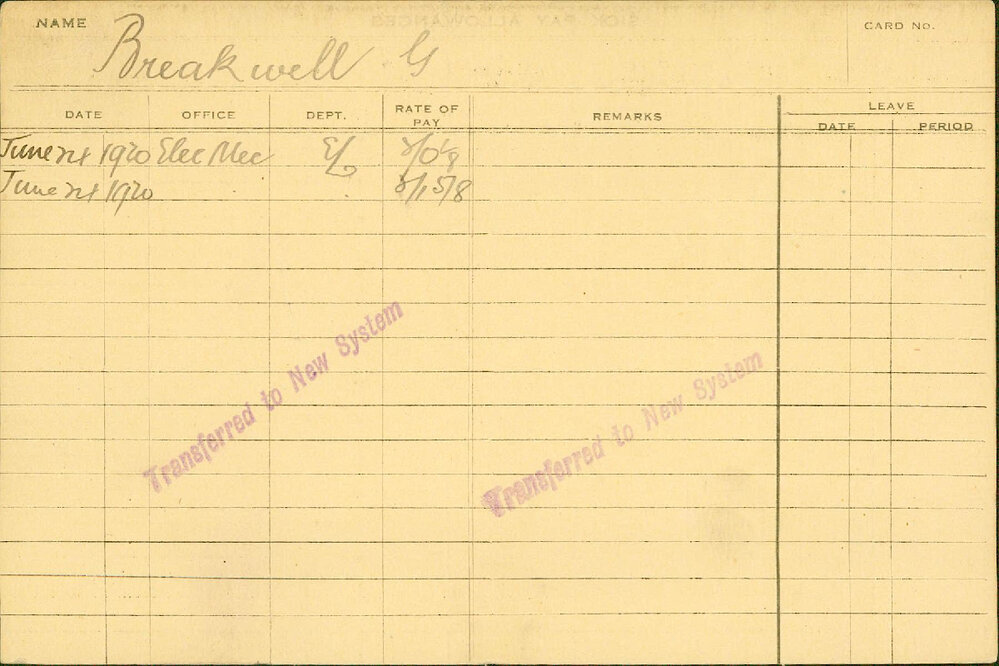 NAME
CARD No.
Breakwell G
DATE OFFICE DEPT. RATE OF PAY REMARKS LEAVE
DATE PERIOD
June 24 1920 Elec Mec EL
June 24 1920 /15/8
Transferred to New System
Transferred to New System